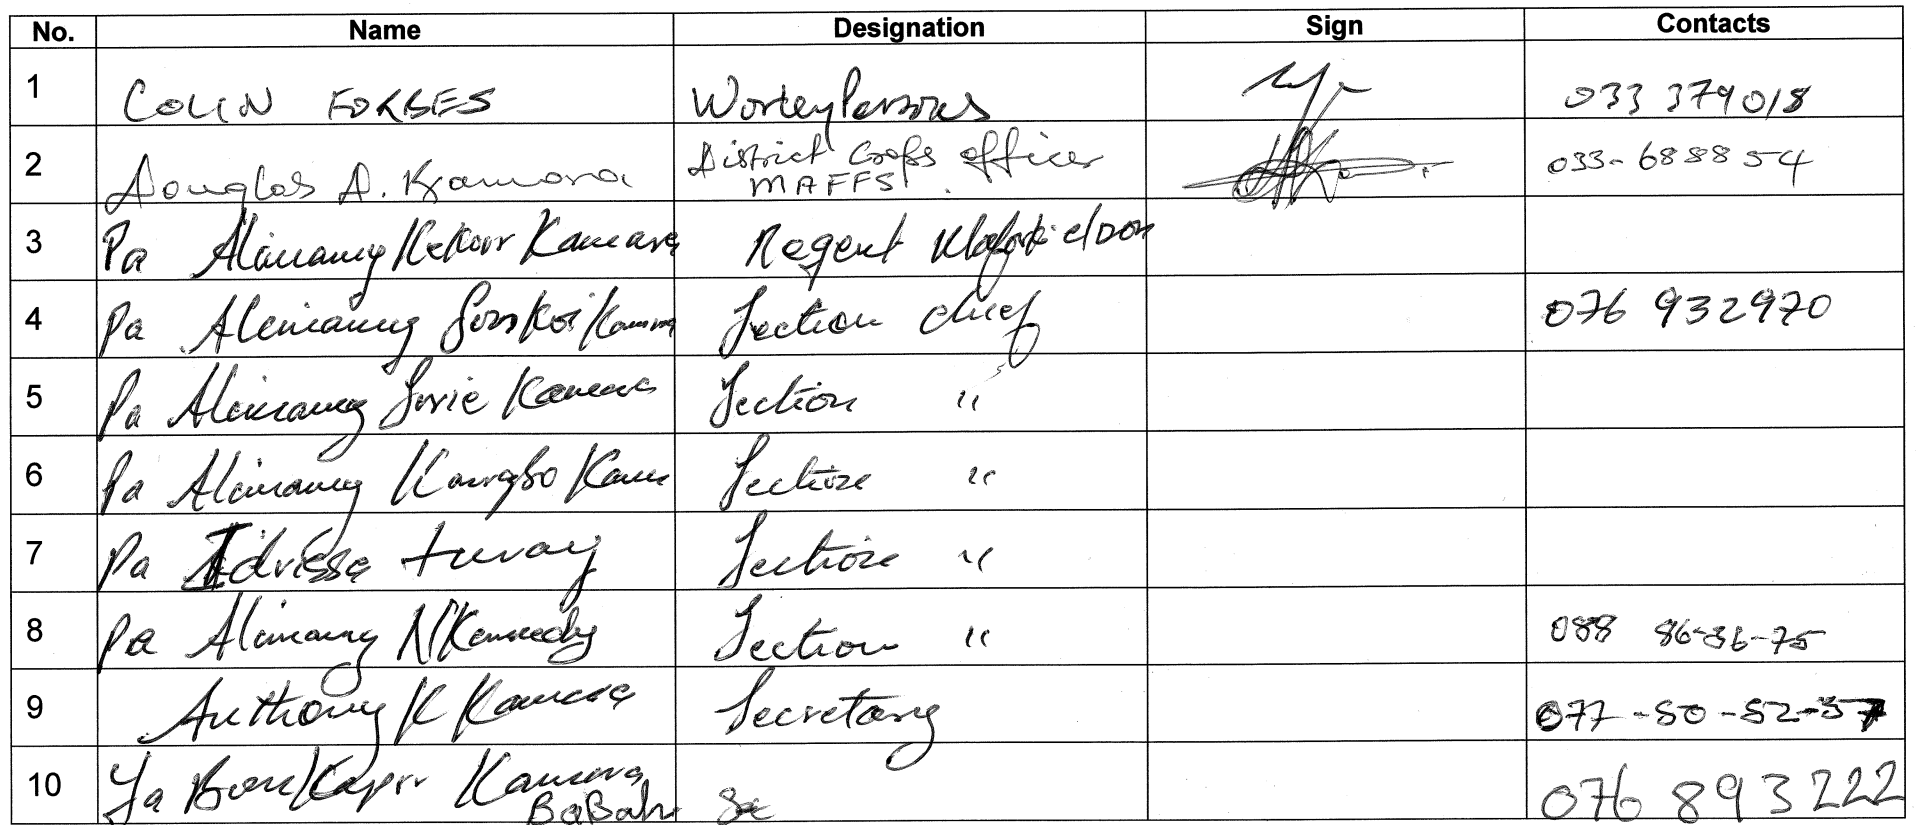 No. Name Designation Sign Contacts
1 COLIN FORBES WorleyParsons 033 379018
2 Douglas A. Kamara District Crops officer MAFFS 033-688854
3 Pa Alimamy Kamara Regent
4 Pa Alimamy Kamara Section chief 076 932970
5 Pa Alimamy Sorie Kamara Section "
6 Pa Alimamy Kangbo Kam Section "
7 Pa Idrissa turay Section "
8 Pa Alimamy N'Kennedy Section " 088 86-36-75
9 Anthony K Kamara Secretary 077-50-52-57
10 Ya Kamara 076 893222